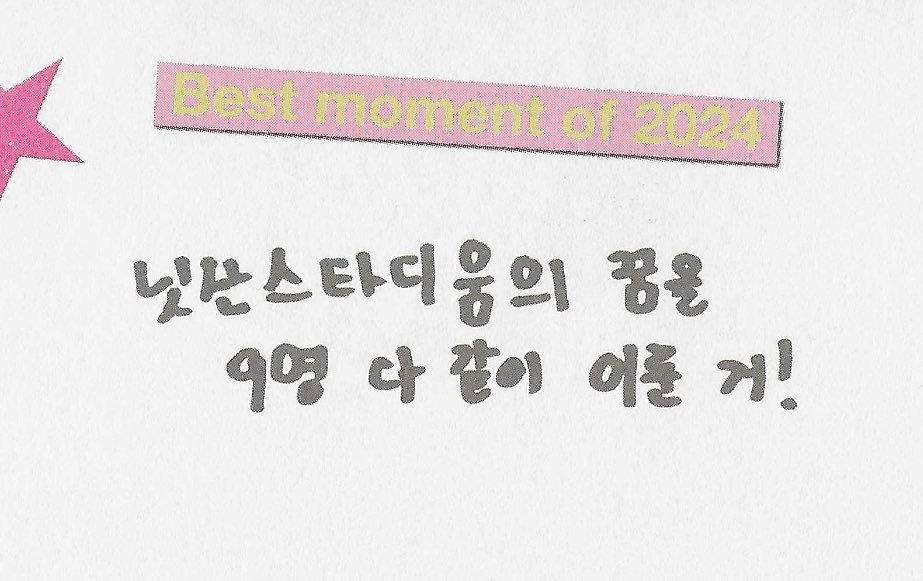 Best moment of 2024
닛산스타디움의 꿈을
9명 다 같이 이룬 거!